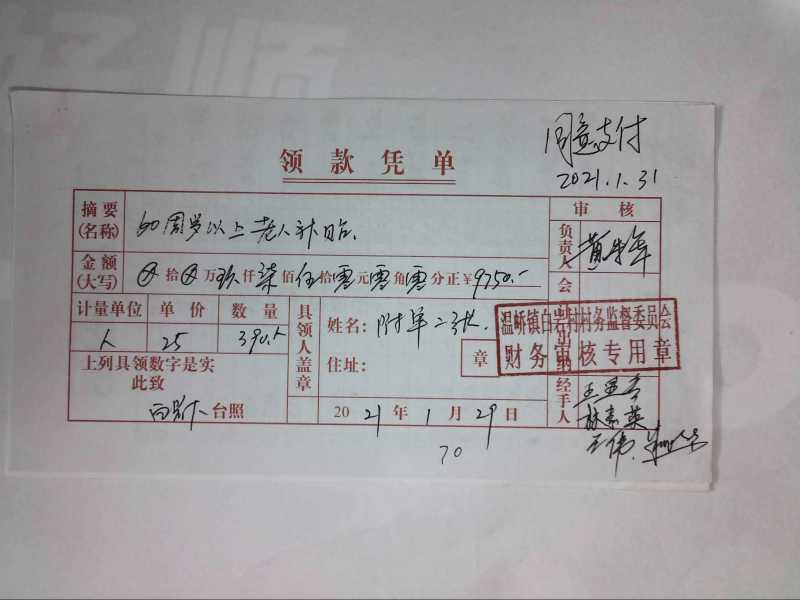 同意支付
2021.1.31
领款凭单
摘要(名称) 60周岁以上老人补贴.
审核
负责人
金额(大写) ⊗拾⊗万玖仟柒佰伍拾零元零角零分正¥9750.-
会计
出纳
计量单位 单价 数量
人 25 390人
具领人盖章
姓名: 附单二张.
住址:
章
温峤镇白岩村村务监督委员会
财务审核专用章
上列具领数字是实
此致
台照
2021年1月29日
经手人
林素英
王伟.
70